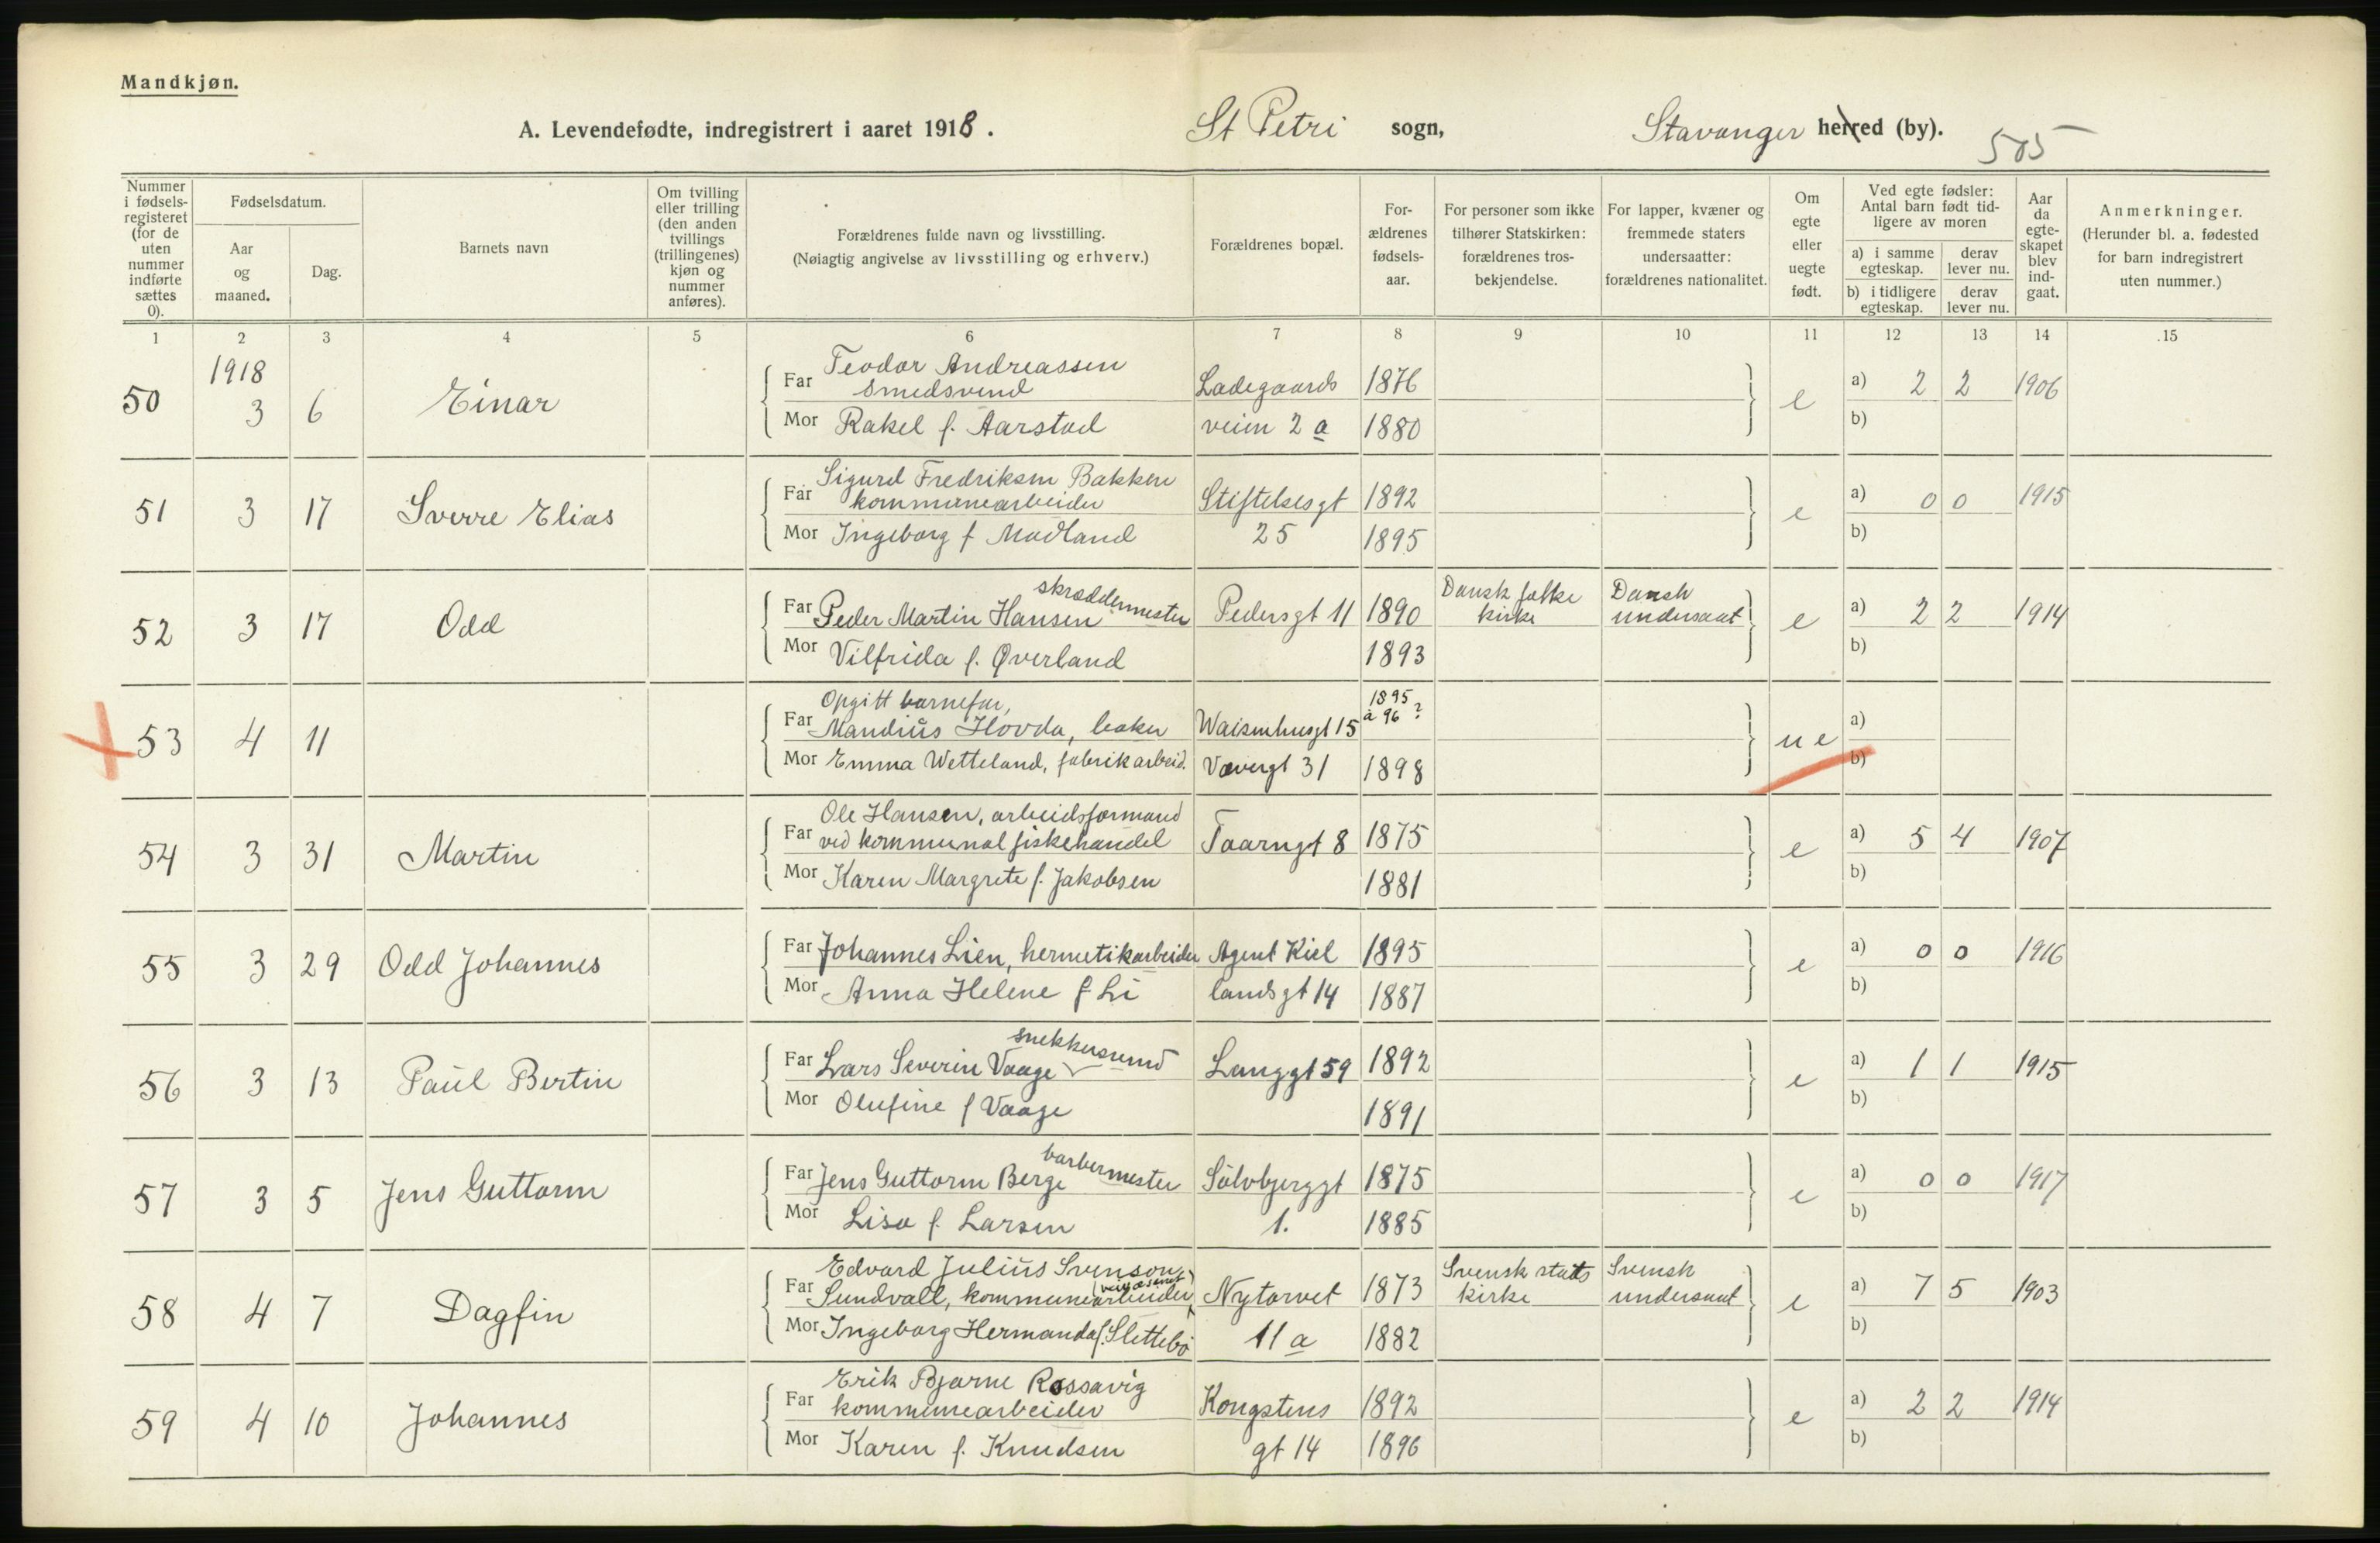 Mandkjøn.
A. Levendefødte, indregistrert i aaret 1918. St Petri sogn, Stavanger herred (by).
505
Nummer i fødsels-registeret (for de uten nummer indførte sættes 0).
Fødselsdatum.
Aar og maaned.
Dag.
Barnets navn
Om tvilling eller trilling (den anden tvillings (trillingenes) kjøn og nummer anføres).
Forældrenes fulde navn og livsstilling.
(Nøiagtig angivelse av livsstilling og erhverv.)
Forældrenes bopæl.
For-ældrenes fødsels-aar.
For personer som ikke tilhører Statskirken: forældrenes tros-bekjendelse.
For lapper, kvæner og fremmede staters undersaatter: forældrenes nationalitet.
Om egte eller uegte født.
Ved egte fødsler: Antal barn født tid-ligere av moren
a) i samme egteskap. derav lever nu.
b) i tidligere egteskap. derav lever nu.
Aar da egte-skapet blev ind-gaat.
Anmerkninger.
(Herunder bl. a. fødested for barn indregistrert uten nummer.)
1 2 3 4 5 6 7 8 9 10 11 12 13 14 15
1918
Teodor Andreassen
50 3 6 Einar Far smedsvend Ladegaards 1876 e a) 2 2 1906
Mor Rakel f. Aarstad veien 2 a 1880 b)
Sigurd Fredriksen Bakken
51 3 17 Sverre Elias Far kommunearbeider Stiftelsesgt 1892 e a) 0 0 1915
Mor Ingeborg f Modland 25 1895 b)
skræddermester Dansk folke Dansk
52 3 17 Odd Far Peder Martin Hansen Pedersgt 11 1890 kirke undersaat e a) 2 2 1914
Mor Vilfrida f. Øverland 1893 b)
Opgitt barnefar, 1895
53 4 11 Far Mandius Hovda, baker Waisenhusgt 15 à 96 ? ue a)
Mor Emma Wetteland, fabrikarbeid. Vævergt 31 1898 b)
Ole Hansen, arbeidsformand
54 3 31 Martin Far ved kommunal fiskehandel Taarngt 8 1875 e a) 5 4 1907
Mor Karen Margrete f. Jakobsen 1881 b)
55 3 29 Odd Johannes Far Johannes Lien, hermetikarbeider Agent Kiel 1895 e a) 0 0 1916
Mor Anna Helene f Li landsgt 14 1887 b)
snekkersvend
56 3 13 Paul Bertin Far Lars Severin Vaage Langgt 59 1892 e a) 1 1 1915
Mor Olufine f Vaage 1891 b)
barbermester
57 3 5 Jens Guttorm Far Jens Guttorm Berge Sølvbjerggt 1875 e a) 0 0 1917
Mor Lisa f. Larsen 1. 1885 b)
Edvard Julius Svenson Svensk stats Svensk
58 4 7 Dagfin Far Sundvall, kommunearbeider (veivæsenet) Nytorvet 1873 kirke undersaat e a) 7 5 1903
Mor Ingeborg Hermanda f. Slettebø 11 a 1882 b)
Erik Bjarne Rossavig
59 4 10 Johannes Far kommunearbeider Kongstens 1892 e a) 2 2 1914
Mor Karen f. Knudsen gt 14 1896 b)